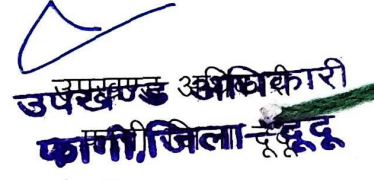 उपखण्ड अधिकारी
फागी, जिला-दूदू